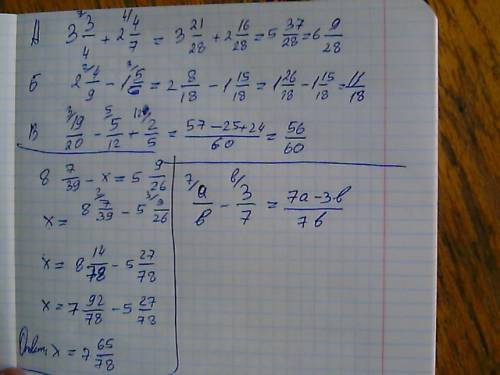 А 3 ⁷⁄3/4 + 2 ⁴⁄4/7 = 3 21/28 + 2 16/28 = 5 37/28 = 6 9/28
Б 2 ²⁄4/9 − 1 ³⁄5/6 = 2 8/18 − 1 15/18 = 1 26/18 − 1 15/18 = 11/18
В ³⁄19/20 − ⁵⁄5/12 + ¹²⁄2/5 = (57 − 25 + 24)/60 = 56/60
8 7/39 − x = 5 9/26
x = 8 ²⁄7/39 − 5 ³⁄9/26
x = 8 14/78 − 5 27/78
x = 7 92/78 − 5 27/78
Ответ: x = 7 65/78
⁷⁄a/в − ᵇ⁄3/7 = (7a − 3в)/7в